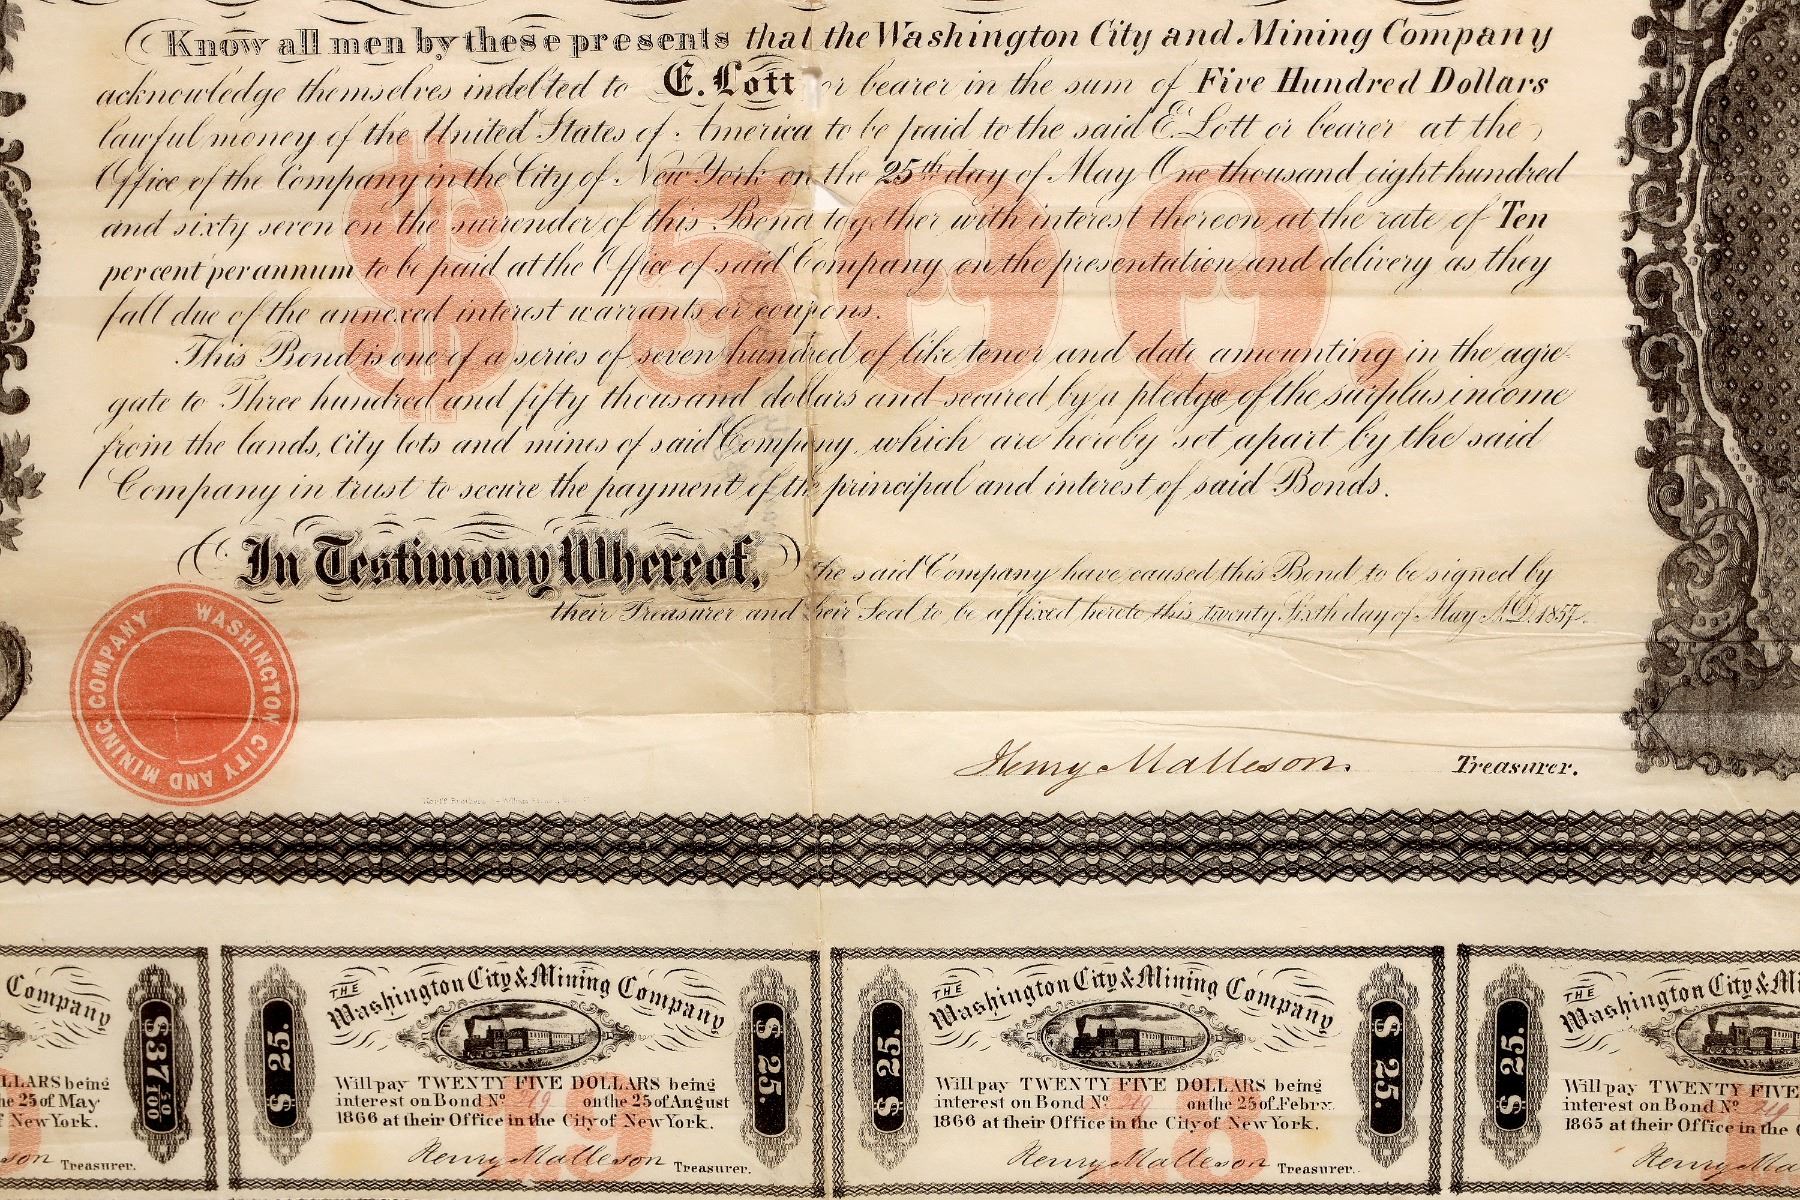 Know all men by these presents that the Washington City and Mining Company
acknowledge themselves indebted to E. Lott or bearer in the sum of Five Hundred Dollars
lawful money of the United States of America to be paid to the said E. Lott or bearer at the
Office of the Company in the City of New York on the 25th day of May One thousand eight hundred
and sixty seven on the surrender of this Bond together with interest thereon at the rate of Ten
per cent per annum to be paid at the Office of said Company on the presentation and delivery as they
fall due of the annexed interest warrants or coupons.
$500.
This Bond is one of a series of seven hundred of like tenor and date amounting in the agre-
gate to Three hundred and fifty thousand dollars and secured by a pledge of the surplus income
from the lands, City lots and mines of said Company, which are hereby set apart by the said
Company in trust to secure the payment of the principal and interest of said Bonds.
In Testimony Whereof, the said Company have caused this Bond to be signed by
their Treasurer and their Seal to be affixed hereto this twenty Sixth day of May A.D. 1857.
WASHINGTON CITY AND MINING COMPANY
Henry Malleson. Treasurer.
Company
$37 50/100
LLARS being
he 25 of May
f New York.
son Treasurer.
$ 25.
THE
Washington City & Mining Company
$ 25.
Will pay TWENTY FIVE DOLLARS being
interest on Bond No. 29 on the 25 of August
1866 at their Office in the City of New York.
19
Henry Malleson Treasurer.
$ 25.
THE
Washington City & Mining Company
$ 25.
Will pay TWENTY FIVE DOLLARS being
interest on Bond No. 29 on the 25 of Febry.
1866 at their Office in the City of New York.
18
Henry Malleson Treasurer.
$ 25.
THE
Washington City & Mi
Will pay TWENTY FIVE
interest on Bond No. 29
1865 at their Office in the C
1
Henry Malle